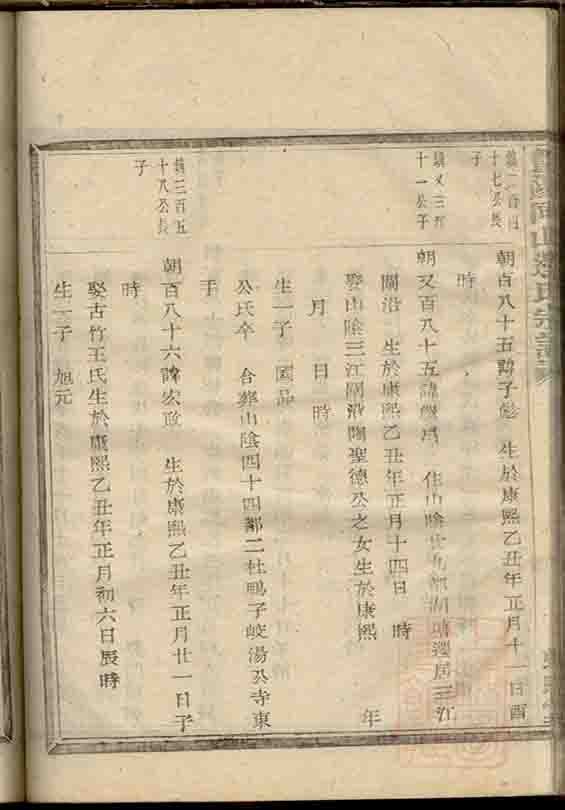 鎮二百四
十七公長
子
朝百八十五諱子彪 生於康熙乙丑年正月十一日酉
時
鎮又三百
十一公子
朝又百八十五諱 住山陰 遷居三江
閘沿 生於康熙乙丑年正月十四日 時
娶山陰三江閘沿陶聖德公之女生於康熙 年
月 日 時
生一子 國品
公氏卒 合葬山陰四十四都二社鴨子岐湯公寺東
于
鎮三百五
十八公長
子
朝百八十六諱宏啟 生於康熙乙丑年正月廿一日子
時
娶古竹王氏生於康熙乙丑年正月初六日辰時
生一子 旭元